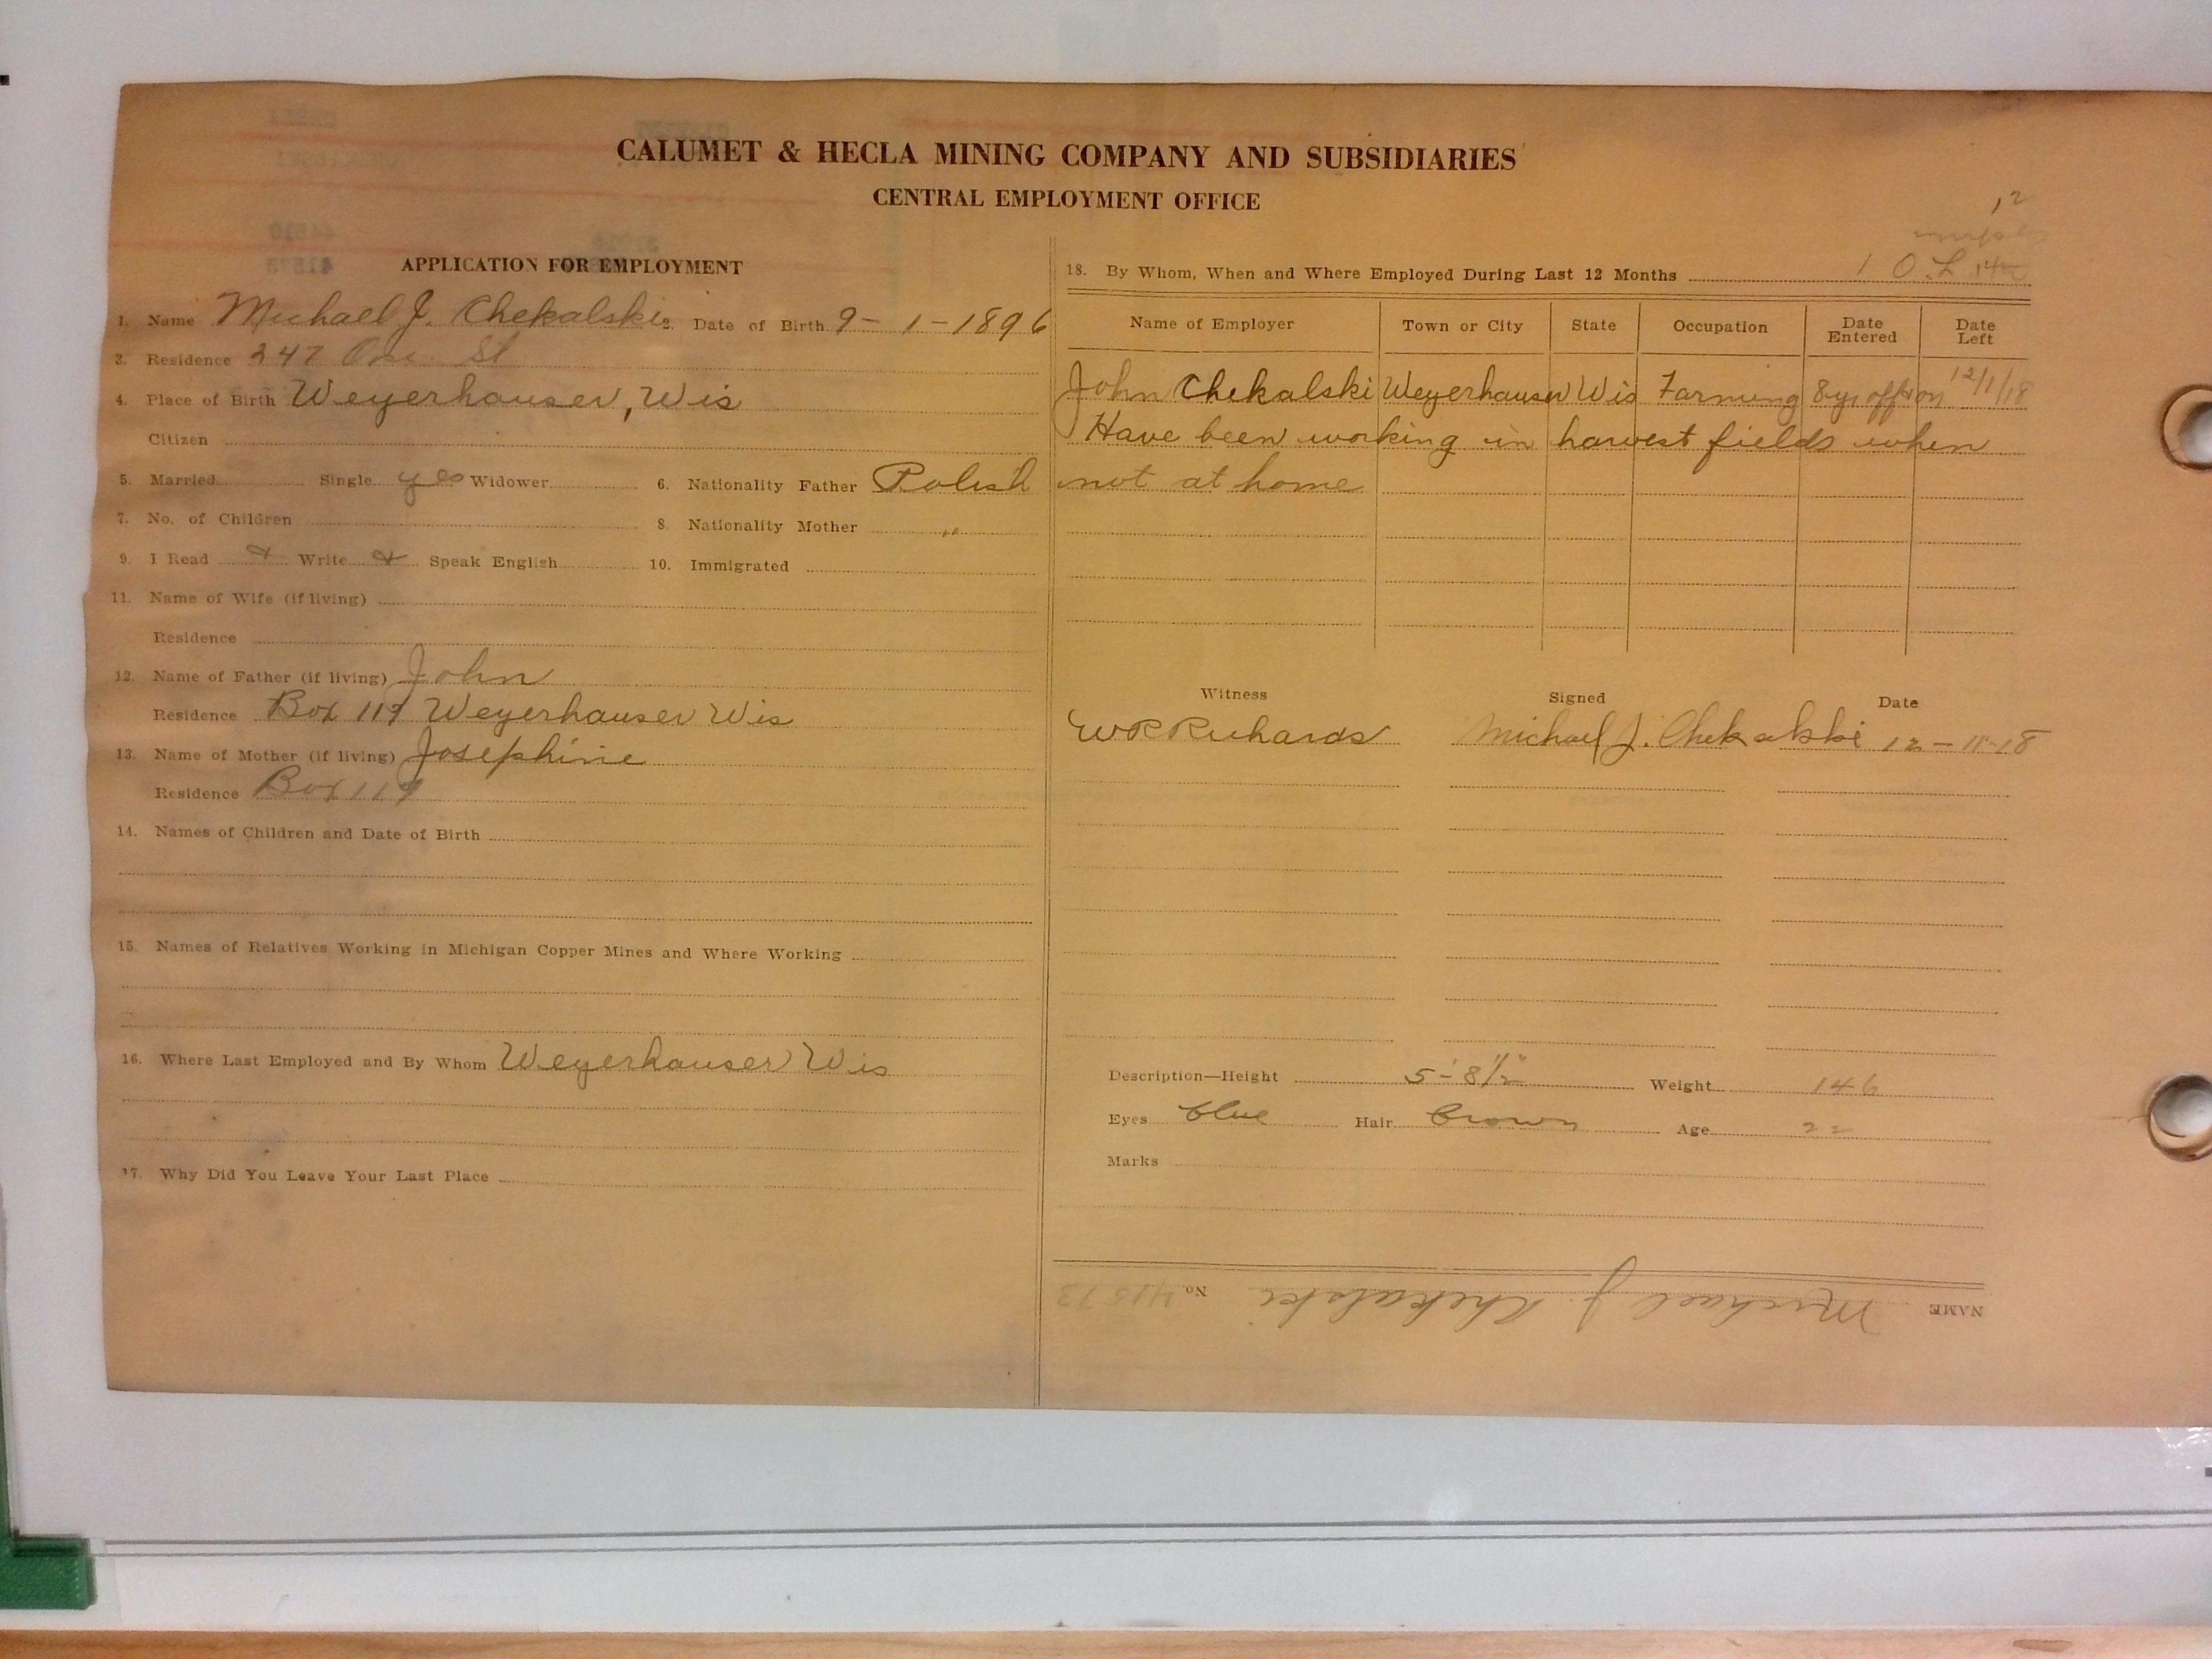 CALUMET & HECLA MINING COMPANY AND SUBSIDIARIES
CENTRAL EMPLOYMENT OFFICE
12
APPLICATION FOR EMPLOYMENT
1. Name Michael J. Chekalski 2. Date of Birth 9-1-1896
3. Residence 247 St
4. Place of Birth Weyerhauser, Wis
Citizen
5. Married Single yes Widower 6. Nationality Father Polish
7. No. of Children 8. Nationality Mother "
9. I Read & Write & Speak English 10. Immigrated
11. Name of Wife (if living)
Residence
12. Name of Father (if living) John
Residence Box 119 Weyerhauser Wis
13. Name of Mother (if living) Josephine
Residence Box 119
14. Names of Children and Date of Birth
15. Names of Relatives Working in Michigan Copper Mines and Where Working
16. Where Last Employed and By Whom Weyerhauser Wis
17. Why Did You Leave Your Last Place
18. By Whom, When and Where Employed During Last 12 Months 1 O.L.
Name of Employer Town or City State Occupation Date Entered Date Left
John Chekalski Weyerhauser Wis Farming 8 yrs off & on 12/1/18
Have been working in harvest fields when
not at home
Witness Signed Date
W R Richards Michael J. Chekalski 12-11-18
Description—Height 5'-8 1/2" Weight 146
Eyes blue Hair brown Age 22
Marks
NAME Michael J. Chekalski No. 41573